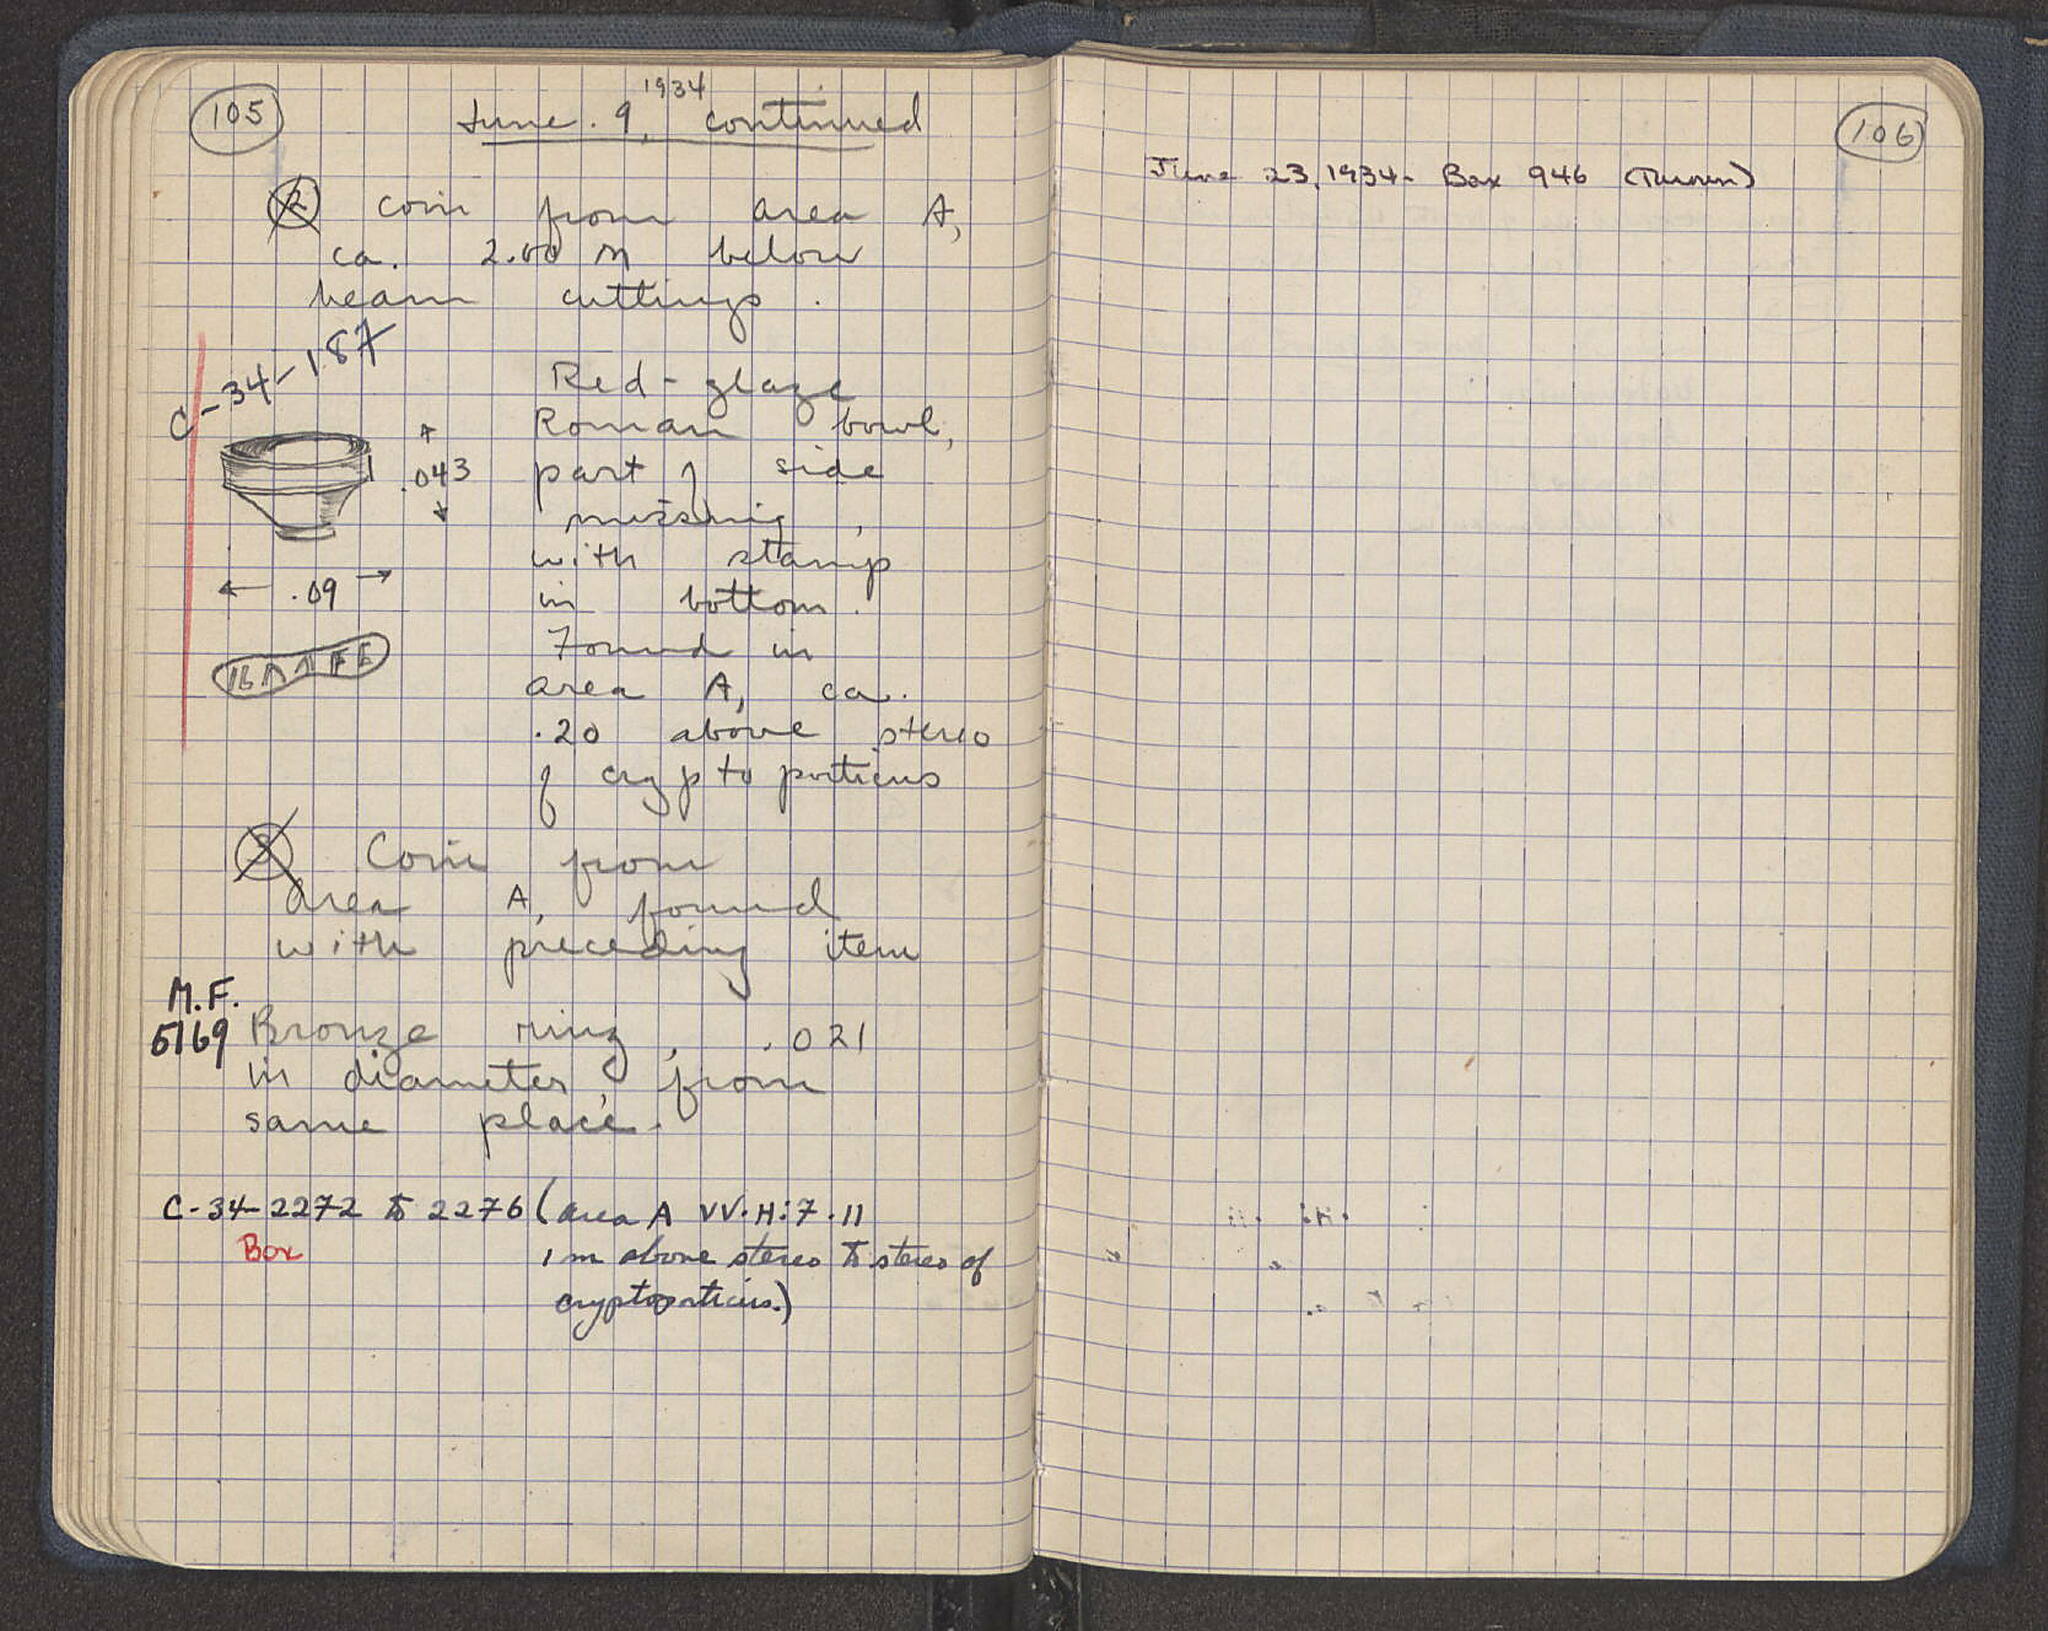 105
June. 9, 1934 continued
2 coin from area A,
ca. 2.00 m below
beam cuttings.
C-34-187
Red-glaze
Roman bowl,
.043
part of side
missing,
with stamp
in bottom.
.09
Found in
area A, ca.
.20 above stereo
of cryptoporticus
3 Coin from
area A, found
with preceding item
M.F.
5169 Bronze ring, .021
in diameter, from
same place.
C-34-2272 to 2276 (area A VV.H:7.11
Box 1 m above stereo to stereo of
cryptoporticus.)
106
June 23, 1934- Box 946 (Thrown)